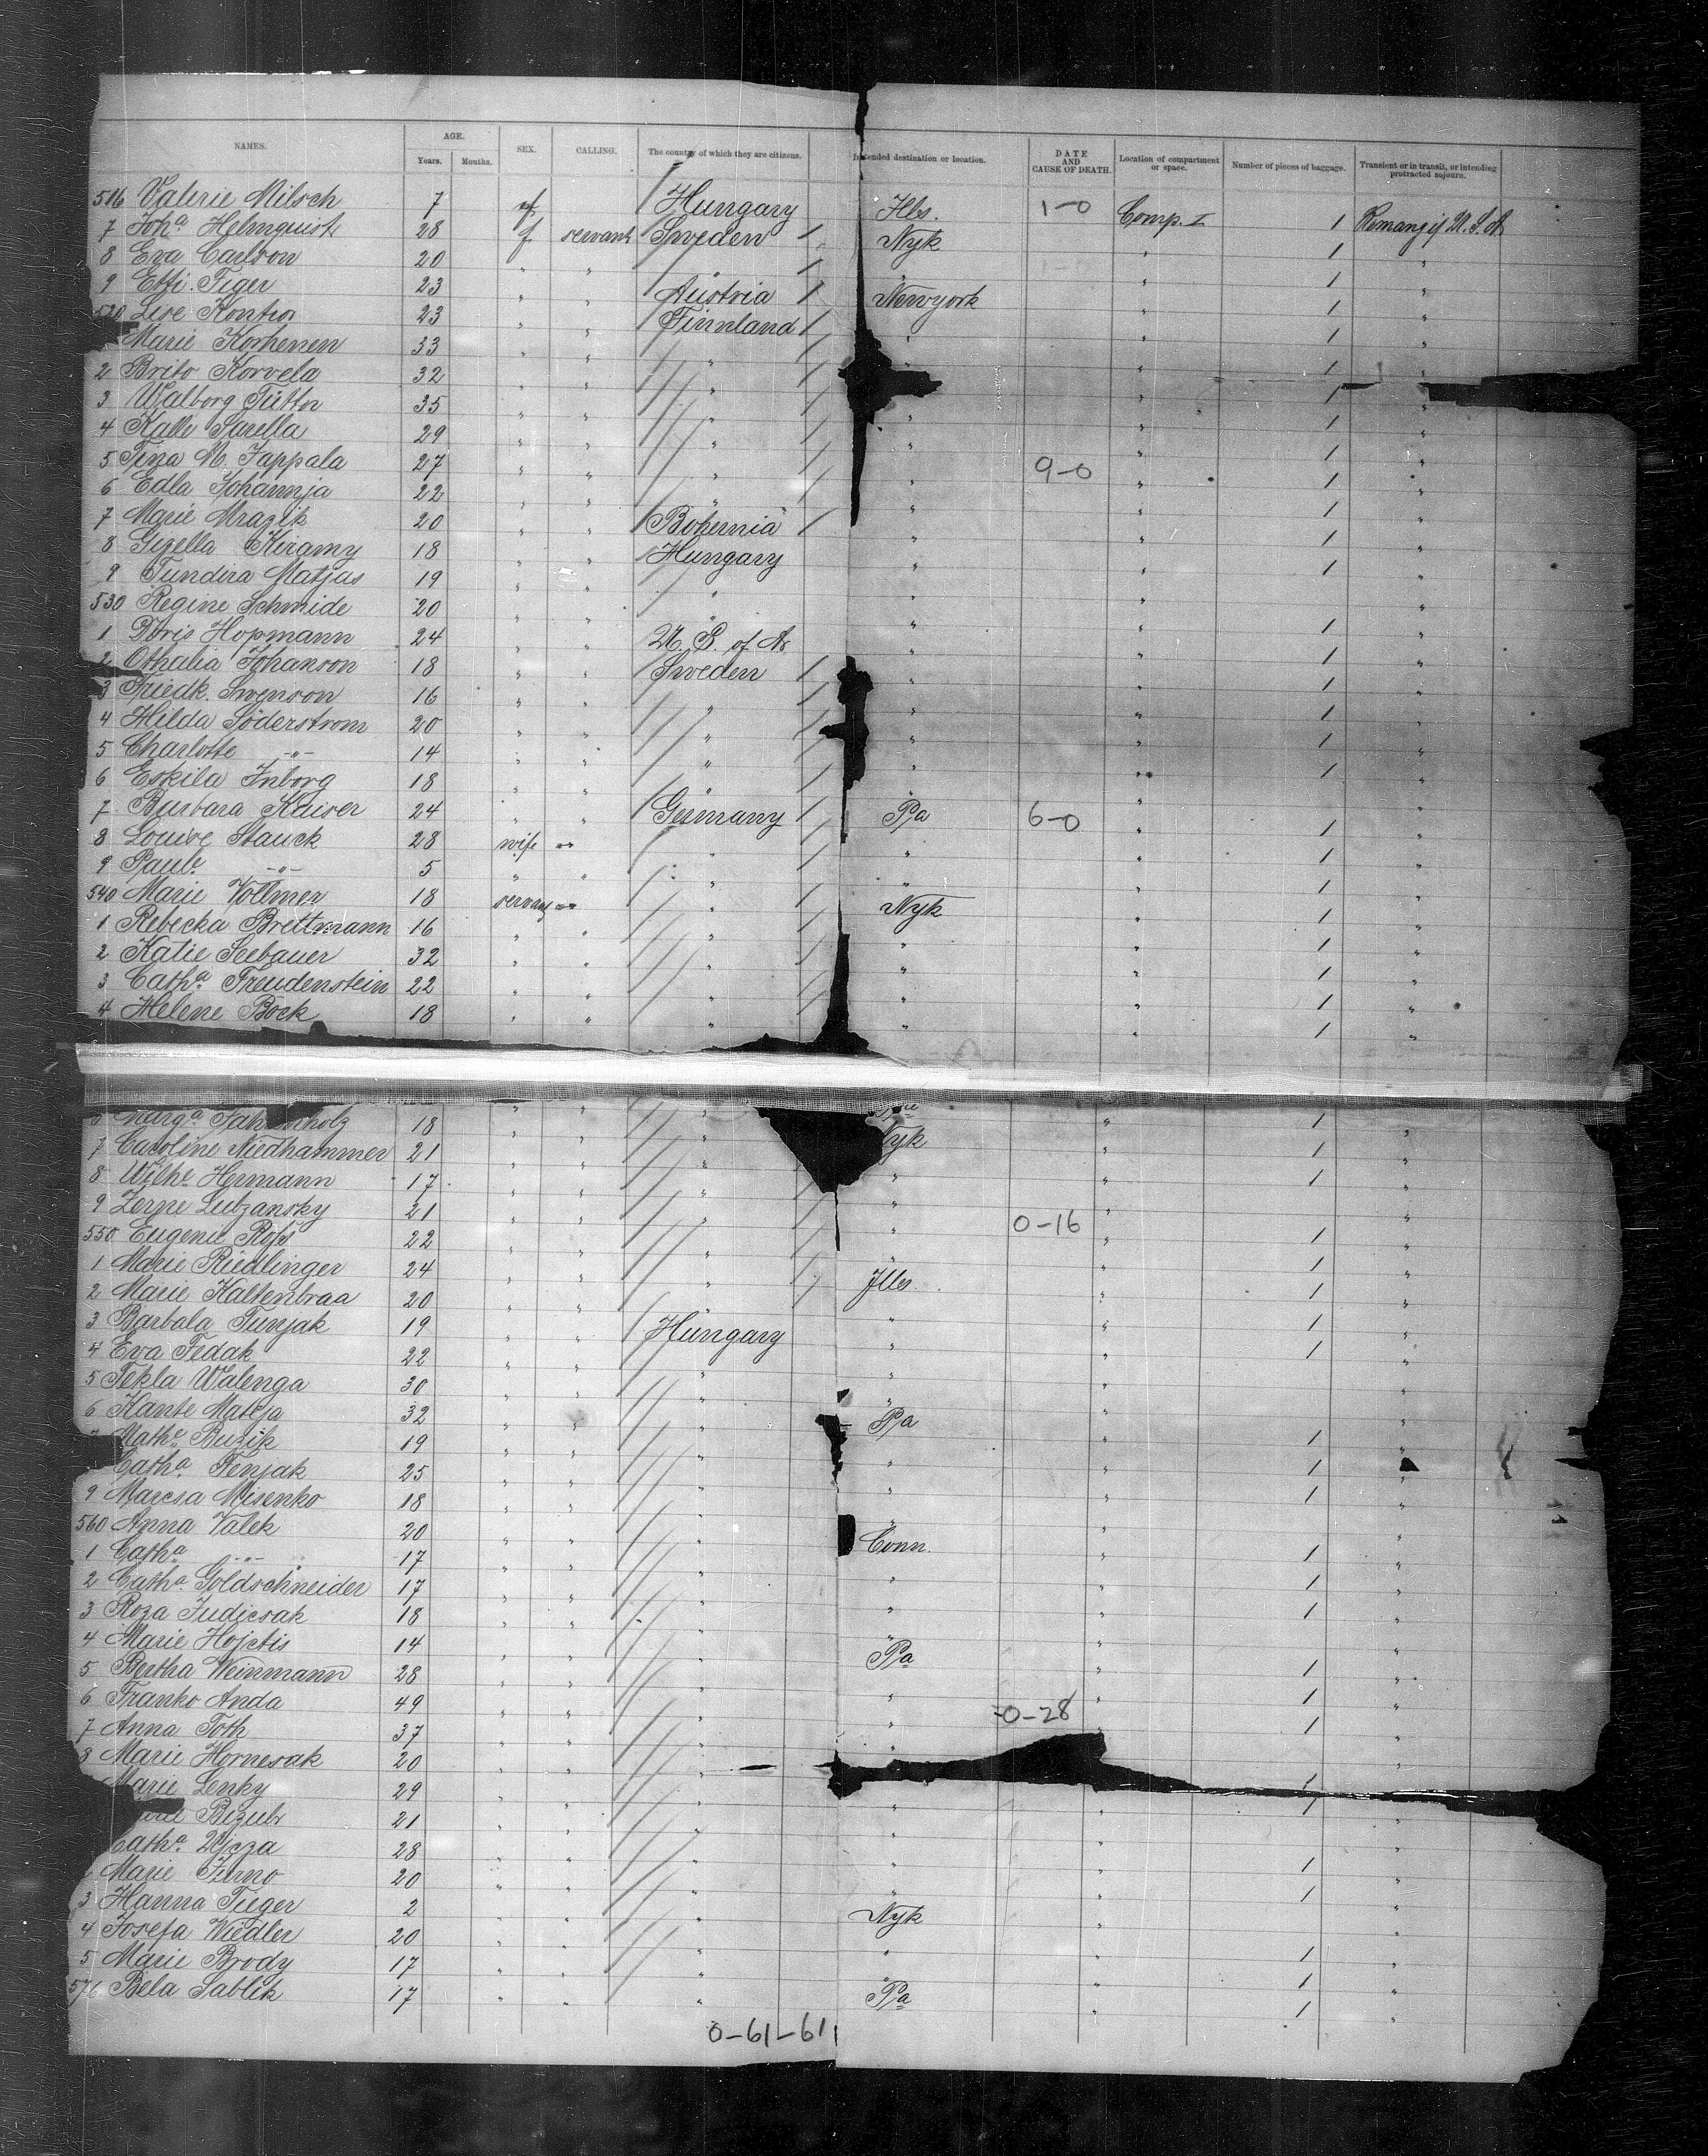 NAMES. AGE. SEX. CALLING. The country of which they are citizens. Intended destination or location. DATE AND CAUSE OF DEATH. Location of compartment or space. Number of pieces of baggage. Transient or in transit, or intending protracted sojourn.
Years. Months.
516 Valerie Milsch 7 f Hungary Ills. 1-0 Comp. I 1
7 Joha Helmquist 28 f servant Sweden Nyk 1 U.S.A
8 Eva Carlson 20 " " " 1 "
9 Etti Tiger 23 " " Austria Newyork " 1 "
520 Lise Kontio 23 " " Finnland " " 1 "
Marie Korhenen 33 " " " " " 1 "
2 Brito Korvela 32 " " " " 1 "
3 Walborg Tütto 35 " " " " " 1 "
4 Kalle Sarella 29 " " " " " 1 "
5 Tina M. Jappala 27 " " " " 9-0 " 1 "
6 Edla Johannja 22 " " " " " 1 "
7 Marie Mrazik 20 " " Bohemia " " 1 "
8 Gizella Kiramy 18 " " Hungary " " 1 "
9 Tundira Matjas 19 " " " " " "
530 Regine Schmide 20 " " " " " 1 "
1 Doris Hopmann 24 " " U.S. of A " " 1 "
2 Othalia Johanson 18 " " Sweden " " 1 "
3 Friedk. Swenson 16 " " " " " 1 "
4 Hilda Söderstrom 20 " " " " " 1 "
5 Charlotte -"- 14 " " " " " 1 "
6 Eskila Inborg 18 " " " " " "
7 Barbara Kaiser 24 " " Germany Pa 6-0 " 1 "
8 Louise Stauck 28 wife " " " " 1 "
9 Paul -"- 5 " " " " " 1 "
540 Marie Vollmer 18 " Nyk " 1 "
1 Rebecka Brettmann 16 " " " " " 1 "
2 Katie Seebauer 32 " " " " " 1 "
3 Catha Freudenstein 22 " " " " " 1 "
4 Helene Bock 18 " " " " " 1 "
Marga 18 " " " " 1 "
7 Caroline Niedhammer 21 " " " Nyk " 1 "
8 Wilhe Hermann 17 " " " " " 1 "
9 Zerne Lubzansky 21 " " " " 0-16 " "
550 Eugenie Roß 22 " " " " " 1 "
1 Marie Riedlinger 24 " " " Ills. " 1 "
2 Marie Kaltenbraa 20 " " " " 1 "
3 Barbala Tunjak 19 " " Hungary " " 1 "
4 Eva Fedak 22 " " " " " 1 "
5 Tekla Walenga 30 " " " " " "
6 Kante Mateja 32 " " " Pa " "
Buzik 19 " " " " " 1 "
Catha Fenjak 25 " " " " " 1 "
9 Marcsa Misenko 18 " " " " " 1 "
560 Anna Valek 20 " " " Conn. " "
1 Catha -"- 17 " " " " " 1 "
2 Catha Goldschneider 17 " " " " " 1 "
3 Roza Judicsak 18 " " " " " 1 "
4 Marie Hojctis 14 " " " Pa " "
5 Bertha Weinmann 28 " " " " " 1 "
6 Franko Anda 49 " " " " 0-28 " 1 "
7 Anna Toth 37 " " " " 1 "
8 Marie Hornesak 20 " " " 1 "
Marie Lenky 29 " " " " " 1 "
Bizub 21 " " " " " "
Catha Ujcza 28 " " " " " 1 "
Marie Firno 20 " " " " " 1 "
3 Hanna Tieger 2 " " " Nyk " "
4 Josefa Wiedler 20 " " " " " 1 "
5 Marie Brody 17 " " " " " 1 "
576 Bela Sablik 17 " " " Pa " 1 "
0-61-61